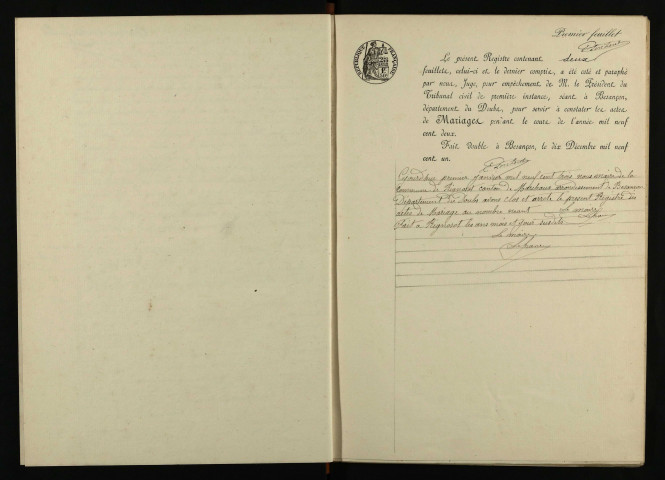 Premier feuillet
RÉPUBLIQUE FRANÇAISE
Le présent Registre contenant deux
feuillets, celui-ci et le dernier compris, a été coté et paraphé
par nous, Juge, pour empêchement de M. le Président du
Tribunal civil de première instance, séant à Besançon,
département du Doubs, pour servir à constater les actes
de Mariages pendant le cours de l'année mil neuf
cent deux.
Fait double à Besançon, le dix Décembre mil neuf
cent un.
premier janvier mil neuf cent trois nous maire de la
commune de canton de arrondissement de Besançon
Département du Doubs avons clos et arrêté le présent Registre des
actes de Mariage au nombre néant Le maire
Fait à les ans mois et jour susdits
Le maire